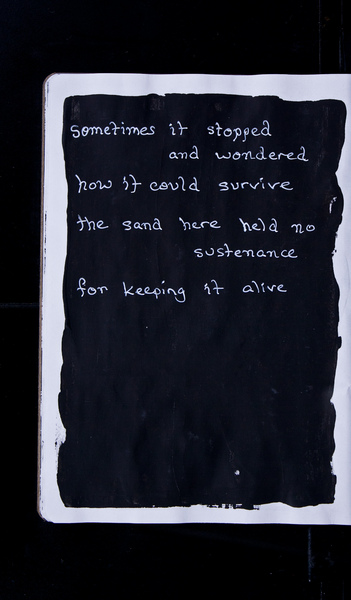 sometimes it stopped
and wondered
how it could survive
the sand here held no
sustenance
for keeping it alive